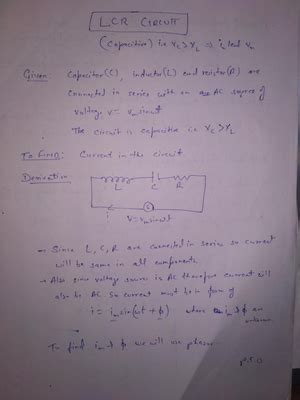 LCR CIRCUIT
(Capacitive) i.e XC > XL ⇒ iC lead
Given: Capacitor(C), inductor(L) and resistor(R) are
connected in series with an AC source of
voltage V = Vm sinωt
The circuit is capacitive i.e XC > XL
To Find: Current in the circuit
Derivation
L C R
V = Vm sinωt
→ Since L, C, R are connected in series so current
will be same in all components.
→ Also since voltage source is AC therefore current will
also be AC. So current must be in form of
i = im sin(ωt + φ) where im & φ are
unknown
To find im & φ we will use phasor